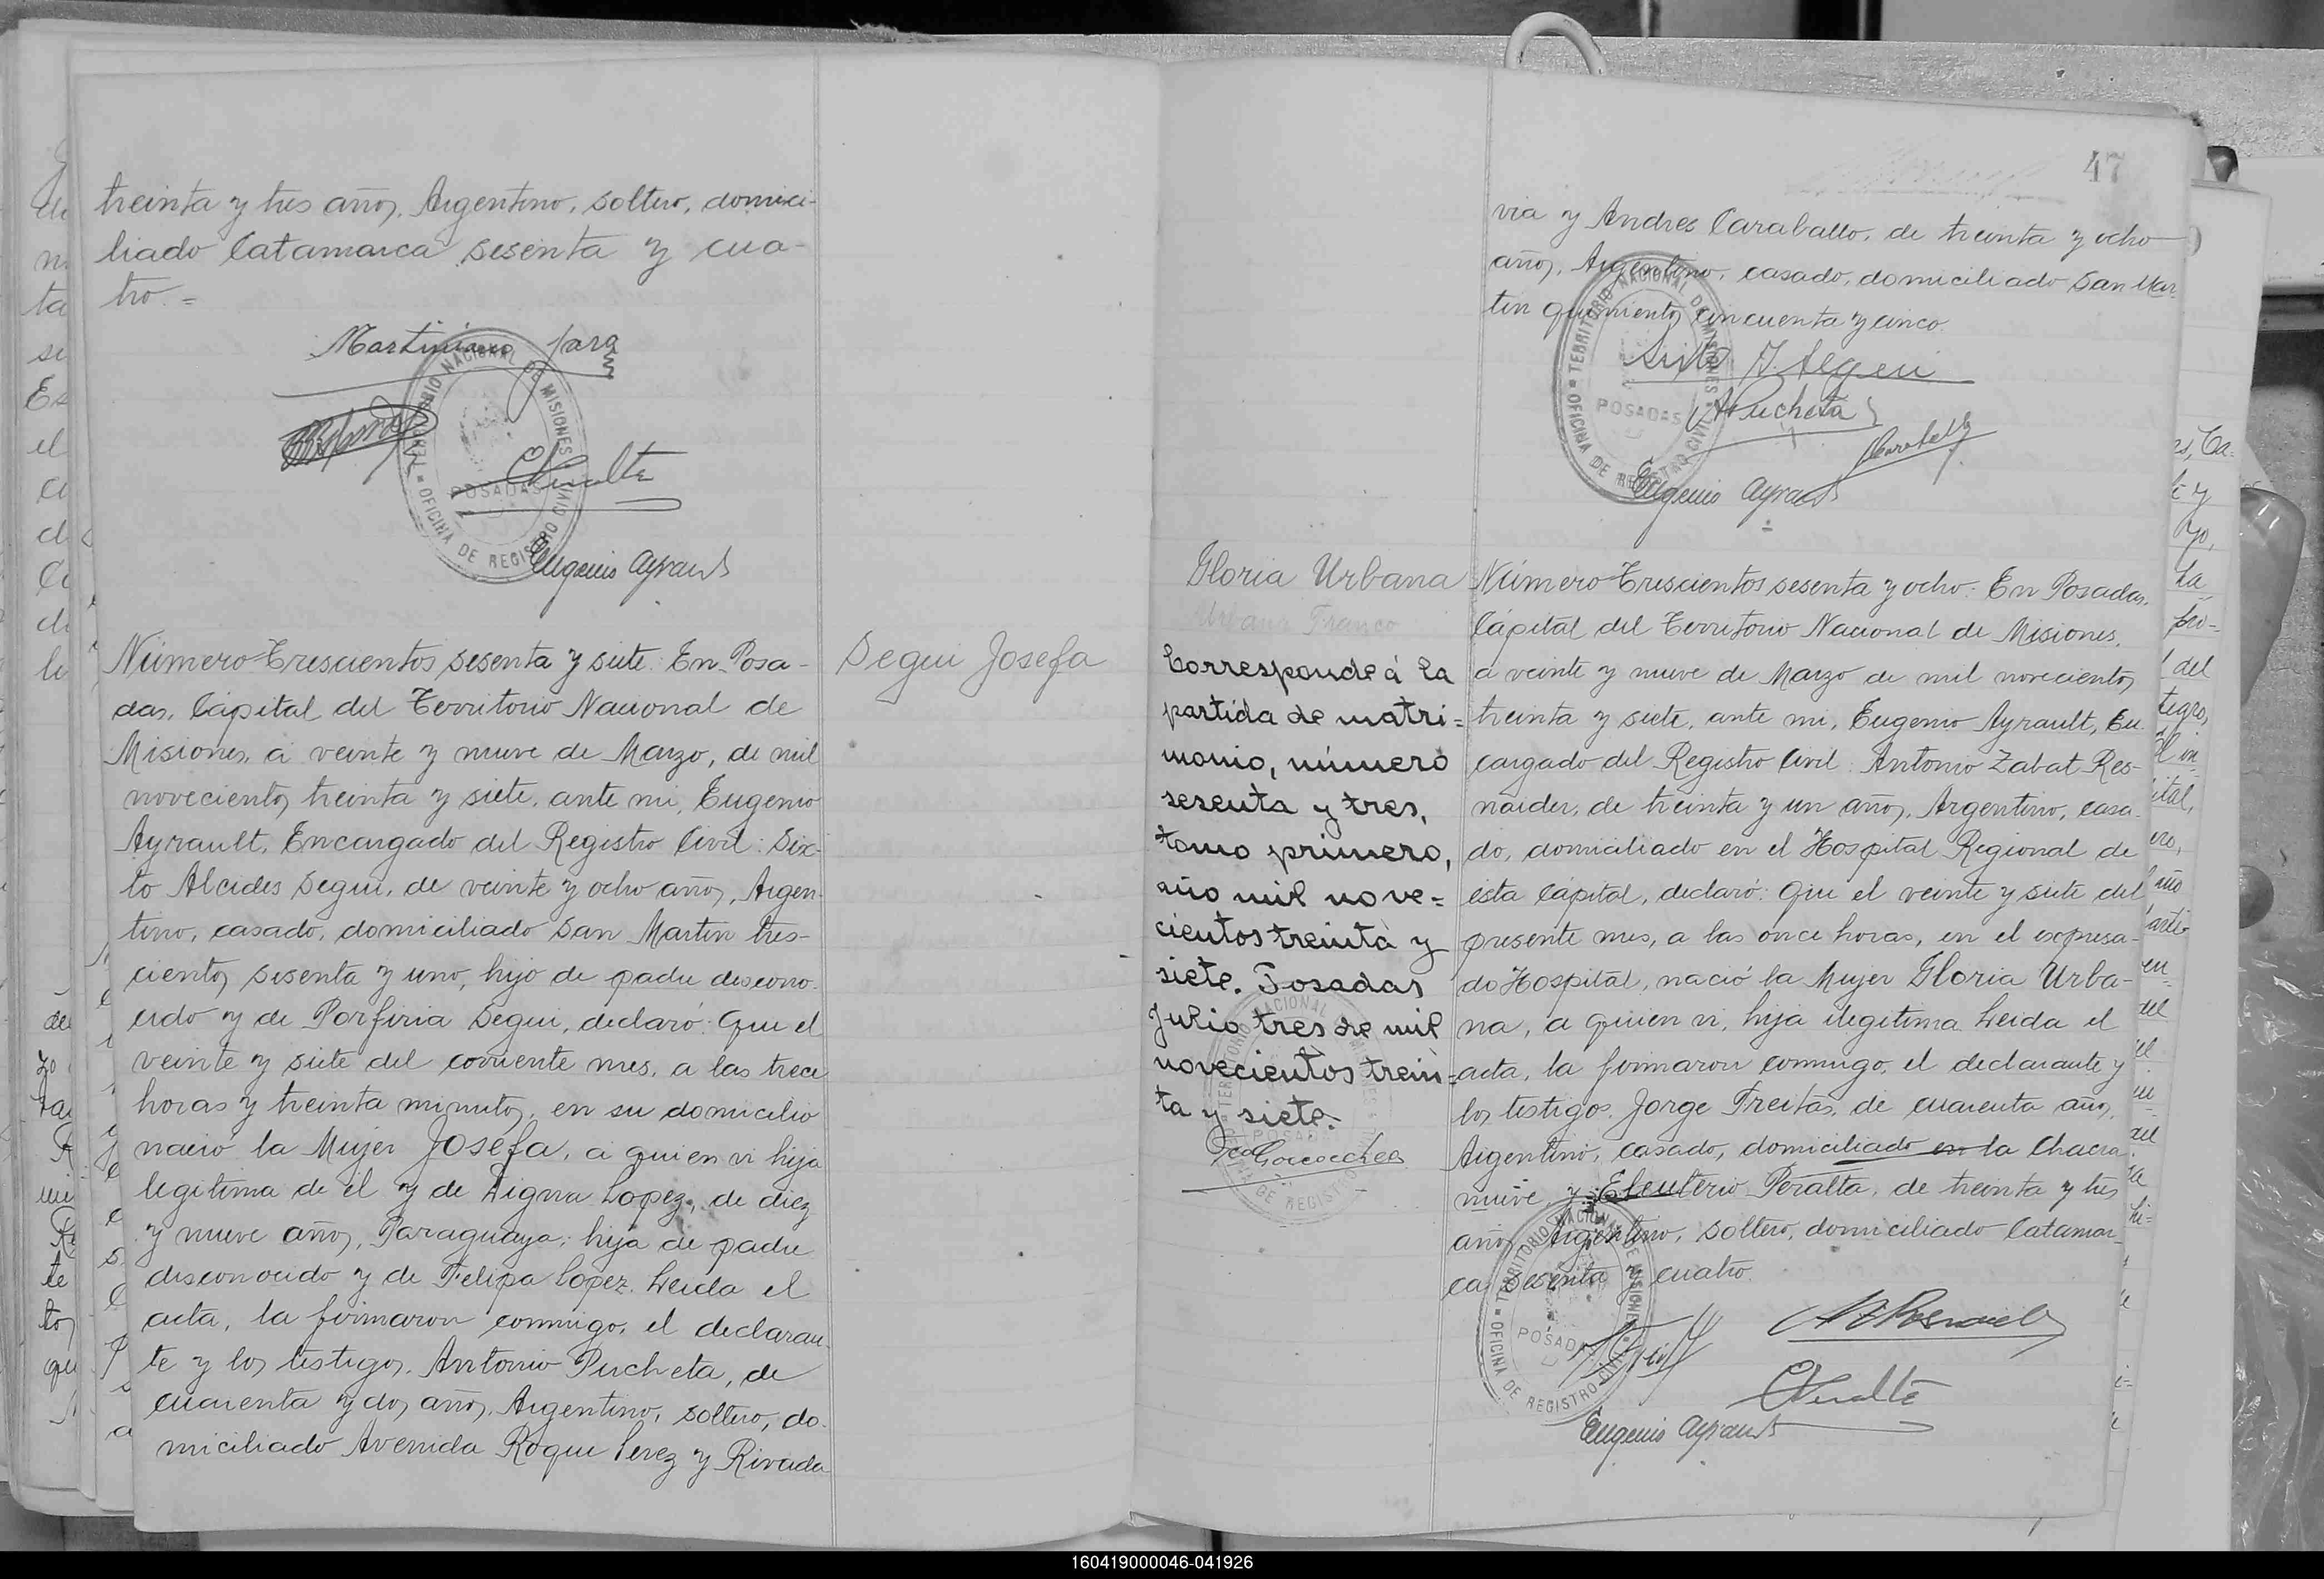 treinta y tres años, Argentino, soltero, domici-
liado Catamarca sesenta y cua-
tro.=
Martiniano Jara
TERRITORIO NACIONAL DE MISIONES
POSADAS
OFICINA DE REGISTRO CIVIL
EPeralta
Eugenio Ayrault
Número Trescientos sesenta y siete: En Posa-
das, Cápital del Territorio Nacional de
Misiones, á veinte y nueve de Marzo, de mil
novecientos treinta y siete, ante mi, Eugenio
Ayrault, Encargado del Registro Civil: Six-
to Alcides Segui, de veinte y ocho años, Argen-
tino, casado, domiciliado San Martin tres-
cientos sesenta y uno, hijo de padre descono-
cido y de Porfiria Segui, declaró: Que el
veinte y siete del corriente mes, a las trece
horas y treinta minutos, en su domicilio
nació la Mujer Josefa, a quien vi hija
legitima de él y de Digna Lopez, de diez
y nueve años, Paraguaya; hija de padre
desconocido y de Felipa Lopez. Leida el
acta, la firmaron conmigo, el declaran-
te y los testigos, Antonio Pucheta, de
cuarenta y dos años, Argentino, soltero, do-
miciliado Avenida Roque Perez y Rivada
Segui Josefa
47
via y Andres Caraballo, de treinta y ocho
años, Argentino, casado, domiciliado San Mar-
tin quinientos cincuenta y cinco.
TERRITORIO NACIONAL DE MISIONES
POSADAS
OFICINA DE REGISTRO CIVIL
Sixto A. Segui
APucheta
Caraballo
Eugenio Ayrault
Gloria Urbana
Urbana Franco
Corresponde á la
partida de matri=
monio, número
sesenta y tres,
tomo primero,
año mil nove=
cientos treinta y
siete. Posadas
Julio tres de mil
novecientos trein=
ta y siete.
TERRITORIO NACIONAL DE MISIONES
POSADAS
OFICINA DE REGISTRO CIVIL
Número Trescientos sesenta y ocho: En Posadas,
Cápital del Territorio Nacional de Misiones,
a veinte y nueve de Marzo de mil novecientos
treinta y siete, ante mi, Eugenio Ayrault, En-
cargado del Registro Civil: Antonio Zabat Res-
naider, de treinta y un años, Argentino, casa-
do, domiciliado en el Hospital Regional de
ésta Cápital, declaró: Que el veinte y siete del
presente mes, a las once horas, en el expresa-
do Hospital, nació la Mujer Gloria Urba-
na, a quien vi, hija ilegitima. Leida el
acta, la firmaron conmigo, el declarante y
los testigos, Jorge Freitas, de cuarenta años,
Argentino, casado, domiciliado en la Chacra
nueve y Eleuterio Peralta, de treinta y tres
años, Argentino, soltero, domiciliado Catamar-
ca sesenta y cuatro.
TERRITORIO NACIONAL DE MISIONES
POSADAS
OFICINA DE REGISTRO CIVIL
EPeralta
Eugenio Ayrault
160419000046-041926